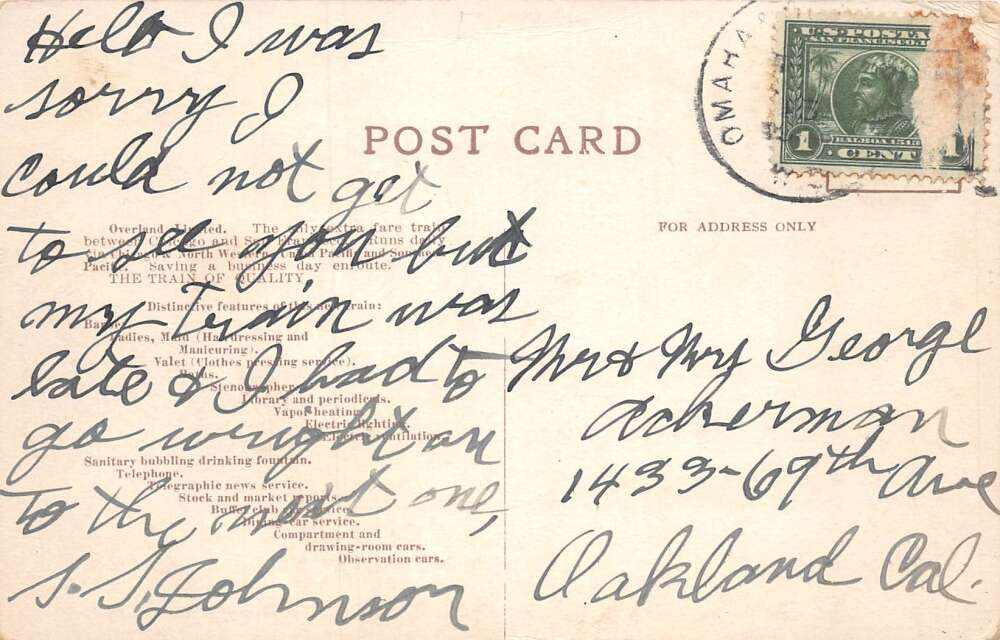 Hello I was
sorry I
could not get
to see you but
my train was
late & I had to
go wright on
to the next one,
S. S. Johnson
POST CARD
Overland Limited. The only extra fare train
between Chicago and San Francisco. Runs daily
via Chicago & North Western, Union Pacific and Southern
Pacific. Saving a business day enroute.
THE TRAIN OF QUALITY.
Distinctive features of this new train:
Barber.
Ladies, Maid (Hairdressing and
Manicuring).
Valet (Clothes pressing service).
Baths.
Stenographer.
Library and periodicals.
Vapor heating.
Electric lighting.
Electric ventilation.
Sanitary bubbling drinking fountain.
Telephone.
Telegraphic news service.
Stock and market reports.
Buffet club car service.
Dining-car service.
Compartment and
drawing-room cars.
Observation cars.
OMAHA
U.S. POSTA
SAN FRANCISCO
BALBOA 1513
1 CENT 1
FOR ADDRESS ONLY
Mr & Mrs George
Ackerman
1433-69th Ave
Oakland Cal.